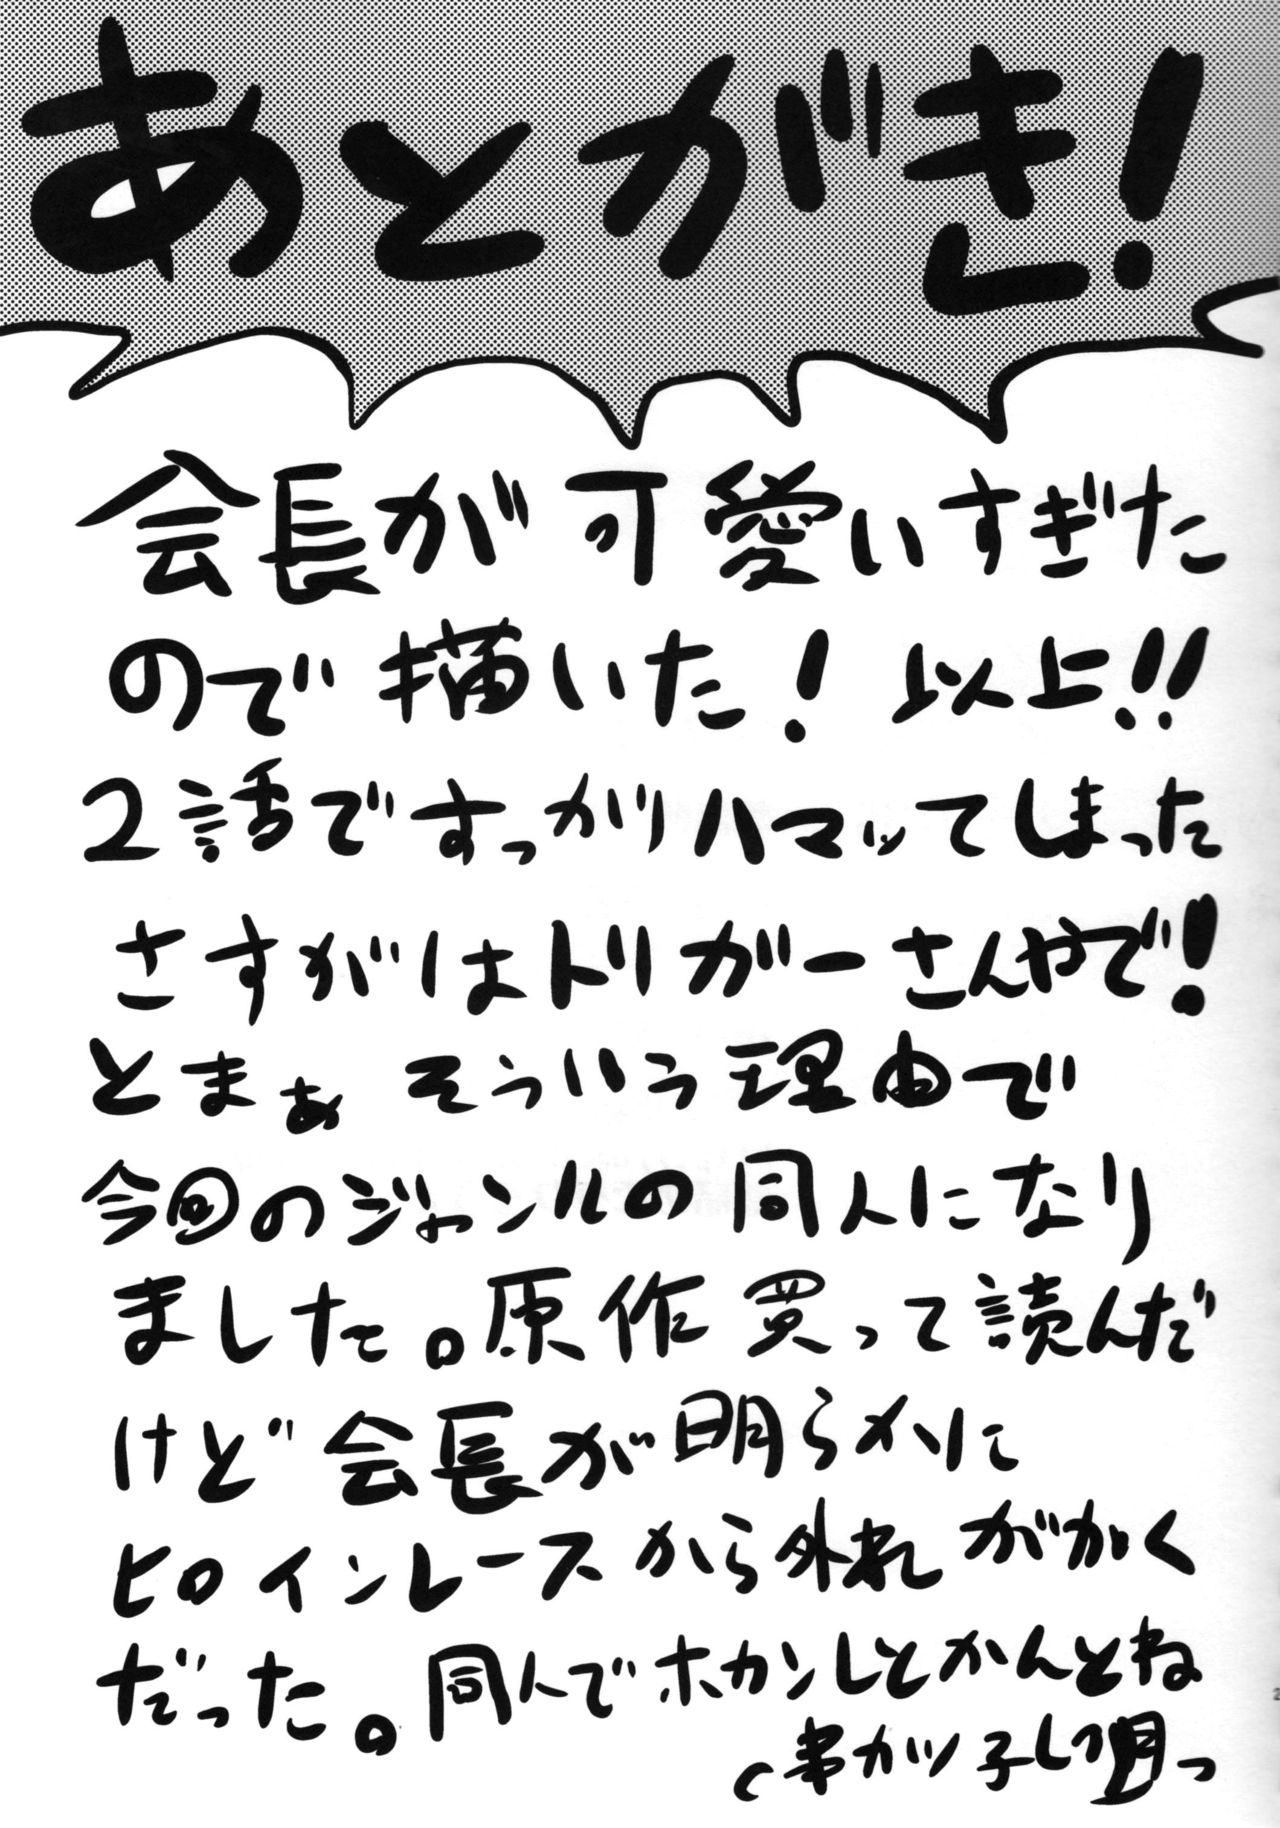 あとがき!
会長が可愛いすぎた
ので描いた! 以上!!
2話ですっかりハマッてしまった
さすがはトリガーさんやで!
とまぁ そういう理由で
今回のジャンルの同人になり
ました。原作買って読んだ
けど会長が明らかに
ヒロインレースから外れがかく
だった。同人でホカンしとかんとね
串カツ子し